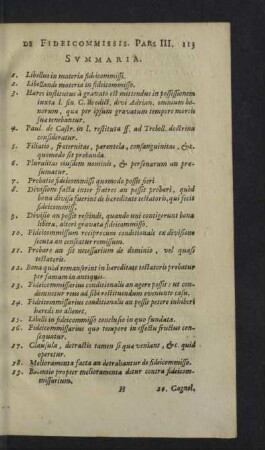 DE FIDEICOMMISSIS. PARS III. 113
SVMMARIA.
1. Libellus in materia fideicommissi.
2. Libellandi materia in fideicommisso.
3. Hæres institutus à gravato est mittendus in possessionem
iuxta l. fin. C. de edict. divi Adrian. omnium bo-
norum, quæ per ipsum gravatum tempore mortis
suæ tenebantur.
4. Paul. de Castr. in l. restituta ff. ad Trebell. doctrina
consideratur.
5. Filiatio, fraternitas, parentela, consanguinitas, &c.
quomodo sit probanda.
6. Pluralitas eiusdem nominis, & personarum an præ-
sumatur.
7. Probatio fideicommissi quomodo possit fieri.
8. Divisione facta inter fratres an possit probari, quòd
bona divisa fuerint de hæreditate testatoris, qui fecit
fideicommiss.
9. Divisio an possit rescindi, quando uni contigerunt bona
libera, alteri gravata fideicommisso.
10. Fideicommissum reciprocum conditionale ex divisione
secuta an censeatur remissum.
11. Probare an sit necessarium de dominio, vel quasi
testatoris.
12. Bona quòd remanserint in hæreditate testatoris probatur
per famam in antiquis.
13. Fideicommissarius conditionalis an agere possit: ut con-
demnetur reus ad sibi restituendum eveniente casu.
14. Fideicommissarius conditionalis an possit petere inhiberi
hæredi ne alienet.
15. Libelli in fideicommisso conclusio in quo fundata.
16. Fideicommissarius quo tempore in effectu fructus con-
sequatur.
17. Clausula, detractis tamen si qua veniant, &c. quid
operetur.
18. Melioramenta facta an detrahantur de fideicommisso.
19. Retentio propter melioramenta datur contra fideicom-
missarium.
H 20. Cagnol.